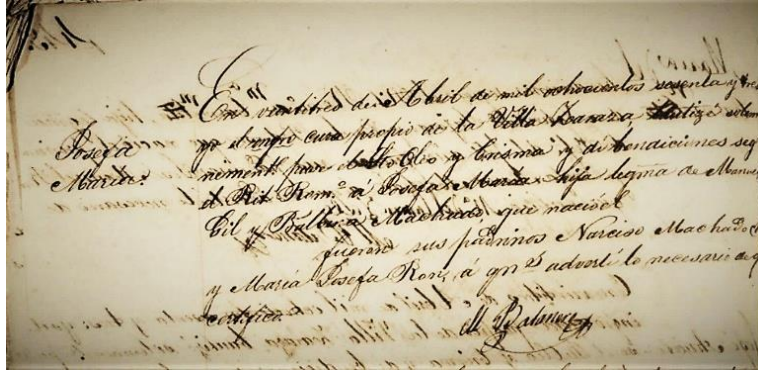 Josefa
Maria
En veintitres de Abril de mil ochocientos sesenta y tres
yo el cura propio de la Villa Zaraza Bautizé solem
nemente puse el Sto Oleo y Crisma y di bendiciones seg
el Rit Rom.º á Josefa Maria hija legma de Manue
Gil y Balbina Machado, que nació el
fueron sus padrinos Narciso Machado
y María Josefa Ron, á qnes advertí lo necesario de q
certifico